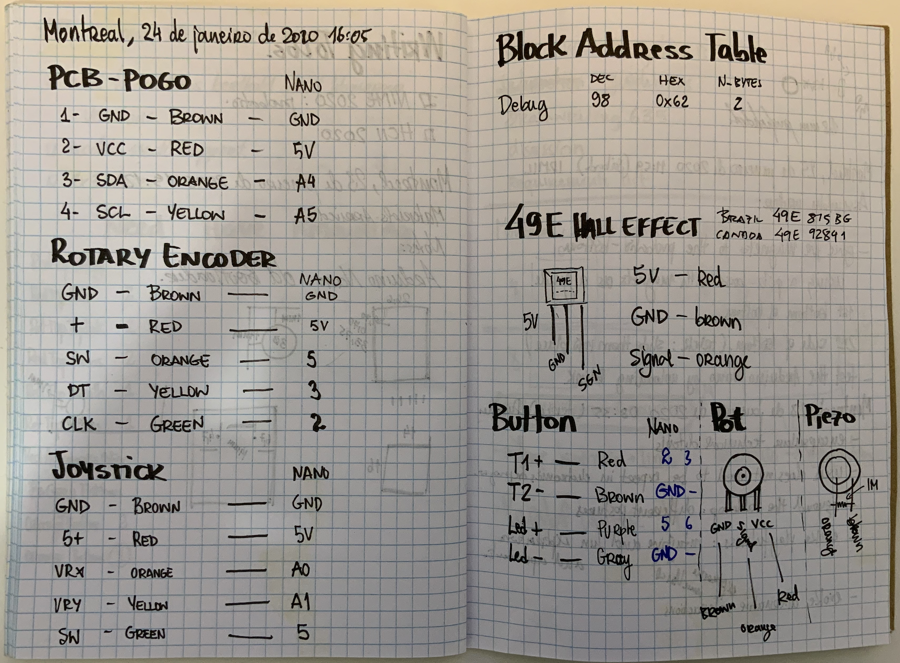 Montreal, 24 de janeiro de 2020 16:05
PCB-POGO NANO
1- GND - BROWN - GND
2- VCC - RED - 5V
3- SDA - ORANGE - A4
4- SCL - YELLOW - A5
ROTARY ENCODER
NANO
GND - BROWN — GND
+ - RED — 5V
SW - ORANGE — 5
DT - YELLOW — 3
CLK - GREEN — 2
JOYSTICK NANO
GND - BROWN — GND
5+ - RED — 5V
VRX - ORANGE — A0
VRY - YELLOW — A1
SW - GREEN — 5
Block Address Table
DEC HEX N-BYTES
Debug 98 0x62 2
49E HALL EFFECT
BRAZIL 49E 815BG
CANADA 49E 92841
49E
5V GND SGN
5V - Red
GND - brown
Signal - orange
Button NANO
T1+ — Red 2 3
T2- — Brown GND -
Led+ — Purple 5 6
Led- — Gray GND -
Pot
GND Sgn VCC
Brown
orange
Red
Piezo
1M
orange
brown